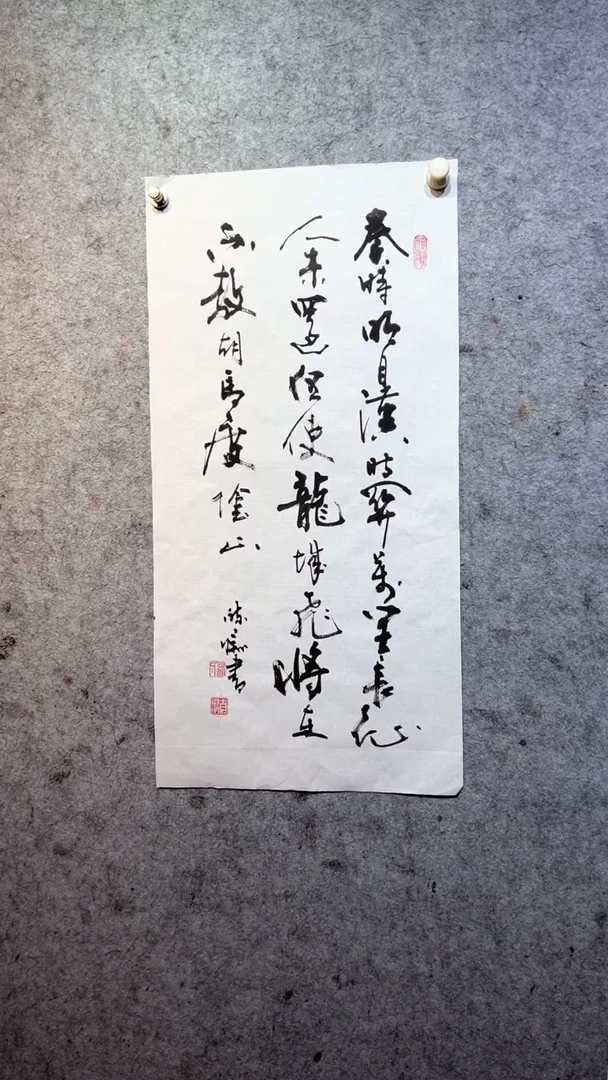 秦時明月漢时關萬里長征
人未還但使龍城飛將在
不教胡馬度陰山
書